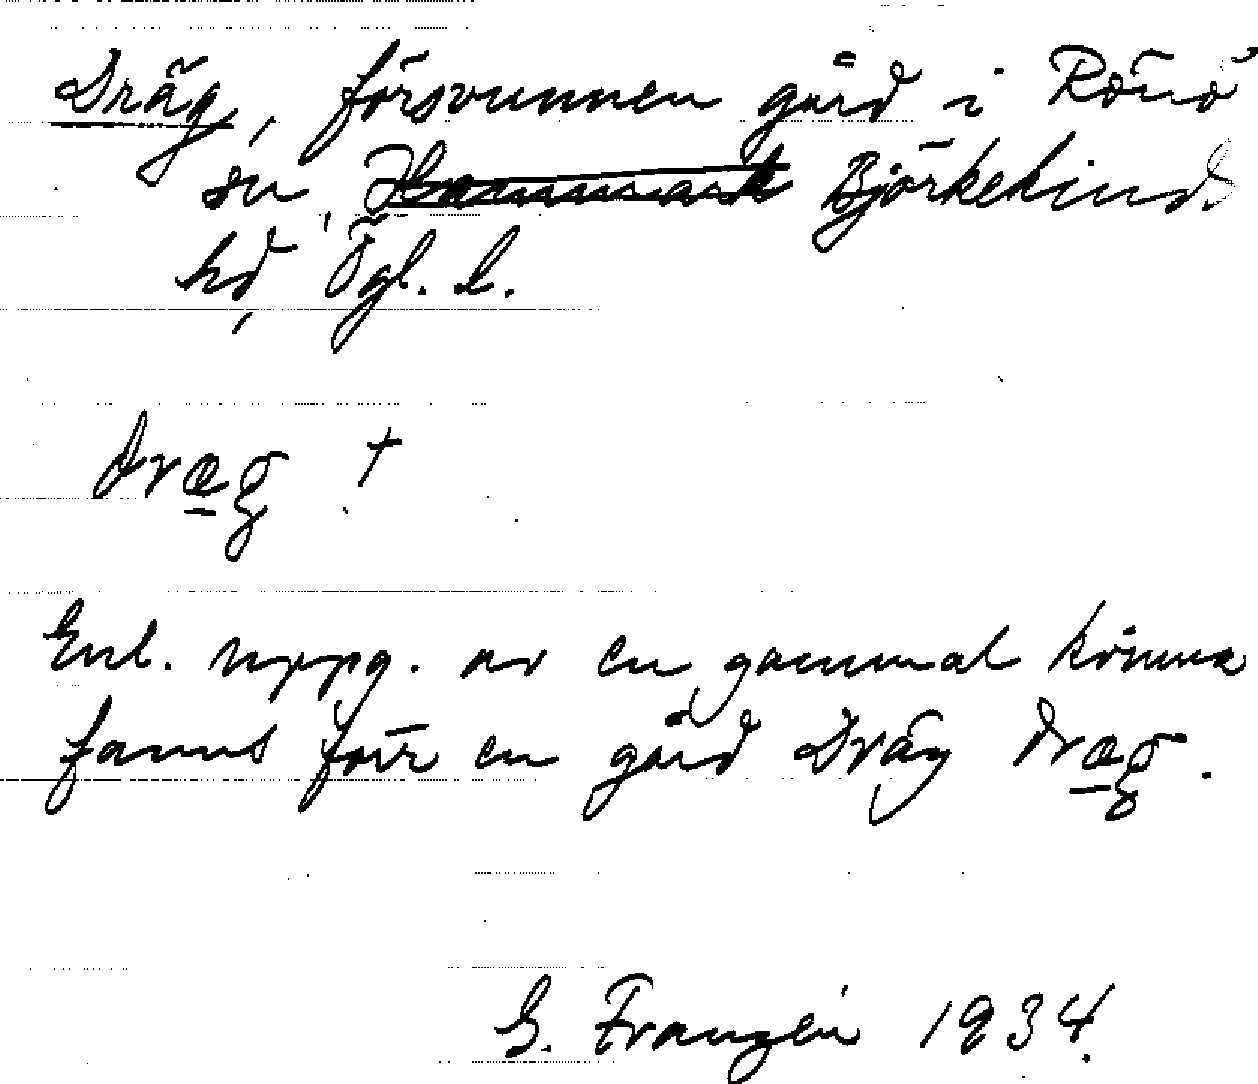 Dräg, försvunnen gård i Rönö
sn, Björkekinds
hd, Ögl. l.
dræg †
Enl. uppg. av en gammal kvinna
fanns förr en gård Dräg dræg.
G. Franzén 1934.